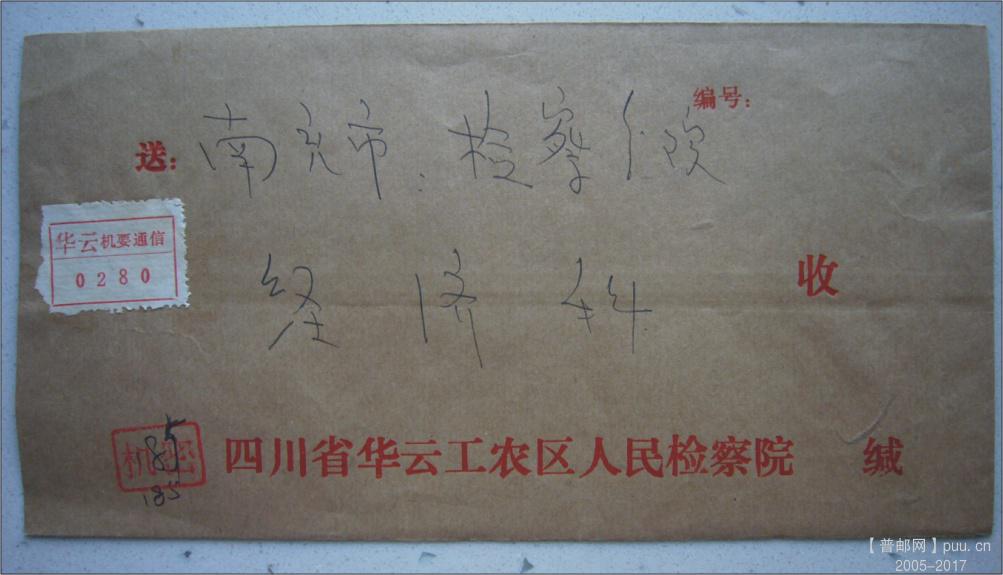 编号:
送: 南充市: 检察院
华云机要通信
0280
经济科
收
机密
185
185
四川省华云工农区人民检察院 缄
【普邮网】puu.cn
2005-2017